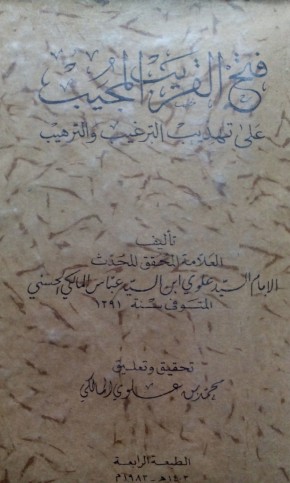 فتح القريب المجيب
على تهذيب الترغيب والترهيب
تأليف
العلامة المحقق المحدث
الإمام السيد علوي ابن السيد عباس المالكي الحسني
المتوفى سنة ١٣٩١
تحقيق وتعليق
محمد بن علوي المالكي
الطبعة الرابعة
١٤٠٣هـ - ١٩٨٣م